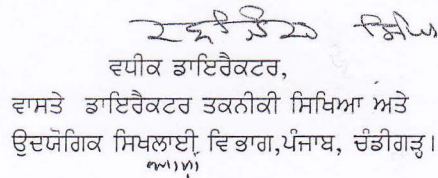 ਵਧੀਕ ਡਾਇਰੈਕਟਰ,
ਵਾਸਤੇ ਡਾਇਰੈਕਟਰ ਤਕਨੀਕੀ ਸਿਖਿਆ ਅਤੇ
ਉਦਯੋਗਿਕ ਸਿਖਲਾਈ ਵਿਭਾਗ,ਪੰਜਾਬ, ਚੰਡੀਗੜ੍ਹ।